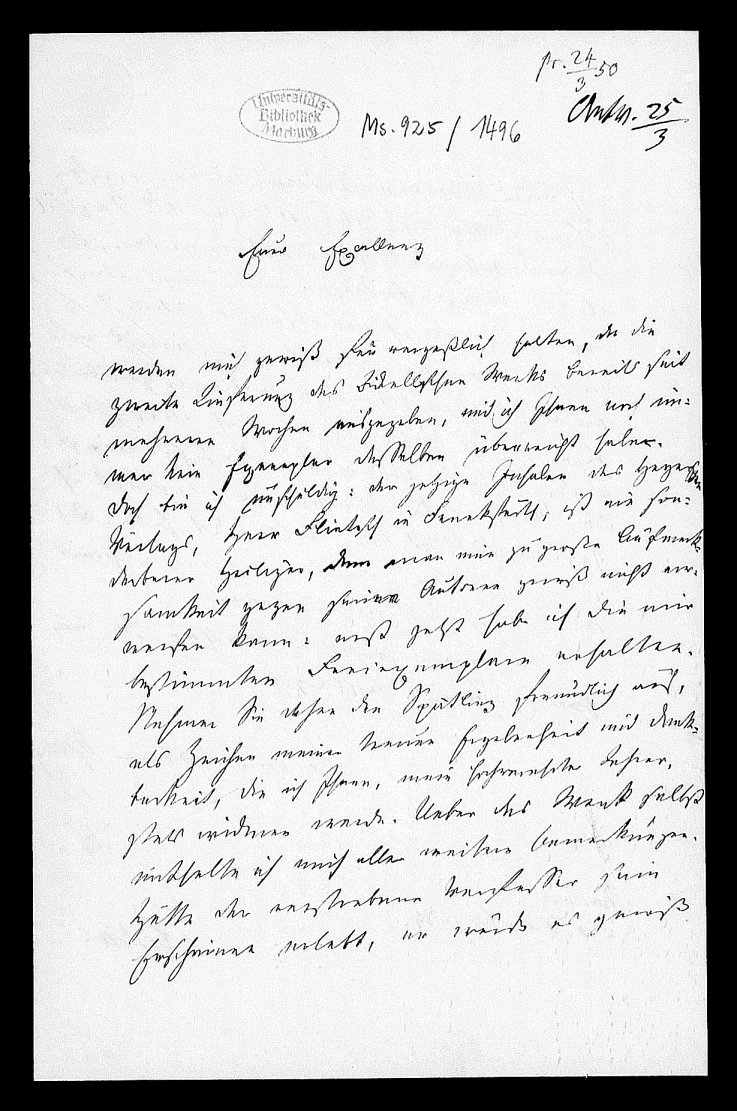 pr. 24/3 50
Antw. 25/3
Universitäts-
Bibliothek
Marburg
Ms. 925 / 1496
Euer Excellenz
werden mich gewiß für vergeßlich halten, da die
zweite Lieferung des Bickellschen Werks bereits seit
mehreren Wochen ausgegeben, und ich Ihnen noch im-
mer kein Exemplar desselben überreicht habe.
Doch bin ich unschuldig: der jetzige Inhaber des Heyerschen
Verlags, Herr in ist ein son-
derbarer Heiliger, dem man eine zu große Aufmerk-
samkeit gegen seine Autoren gewiß nicht vor-
werfen kann: erst jetzt habe ich die mir
bestimmten Freiexemplare erhalten.
Nehmen Sie daher den Spätling freundlich auf,
als Zeichen meiner treuen Ergebenheit und Dank-
barkeit, die ich Ihnen, mein hochverehrter Lehrer,
stets widmen werde. Ueber das Werk selbst
enthalte ich mich aller weitern Bemerkungen.
Hätte der verstorbene Verfasser sein
Erscheinen erlebt, er würde es gewiß